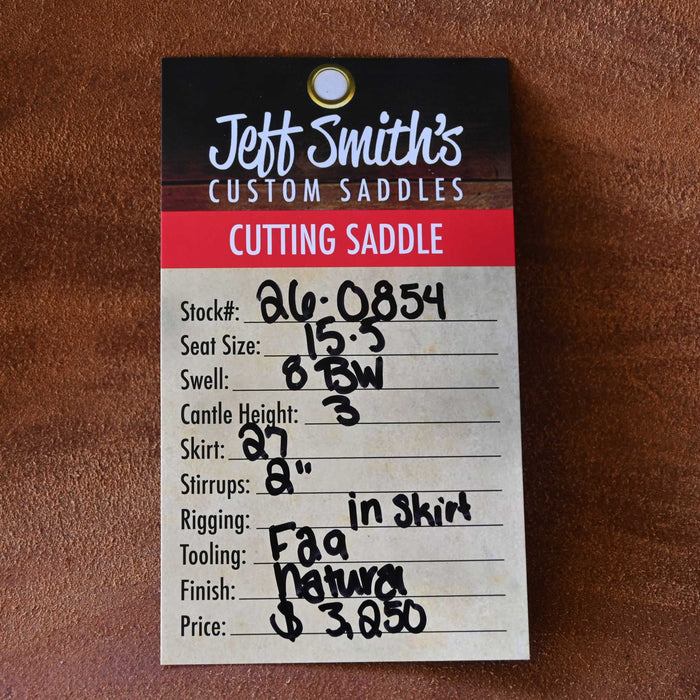 Jeff Smith's
CUSTOM SADDLES
CUTTING SADDLE
Stock#: 26.0854
Seat Size: 15.5
Swell: 8 BW
Cantle Height: 3
Skirt: 27
Stirrups: 2"
Rigging: in skirt
Tooling: F29
Finish: Natural
Price: $ 3,250